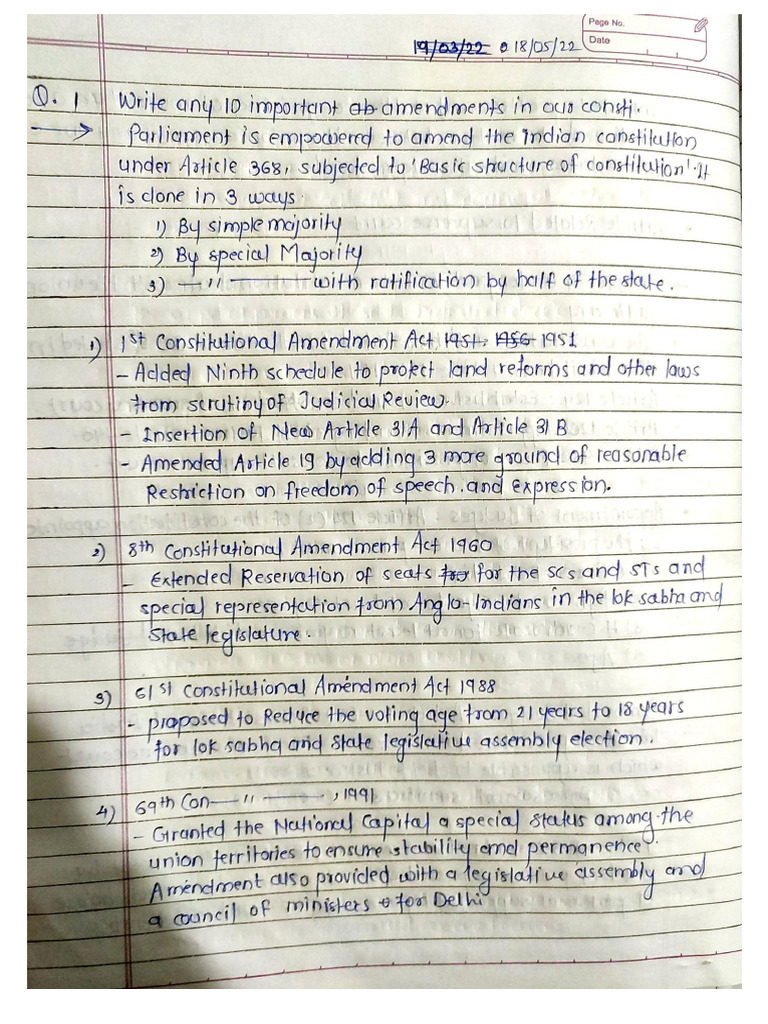 Page No.
Date
19/03/22 18/05/22
Q. 1 Write any 10 important ab amendments in our consti.
→ Parliament is empowered to amend the Indian constitution
under Article 368, subjected to 'Basic structure of constitution'. It
is done in 3 ways
1) By simple majority
2) By special Majority
3) —— " —— with ratification by half of the state.
1) 1st Constitutional Amendment Act, 1951, 1956 1951
- Added Ninth schedule to protect land reforms and other laws
from scrutiny of Judicial Review.
- Insertion of New Article 31A and Article 31 B
- Amended Article 19 by adding 3 more ground of reasonable
Restriction on freedom of speech. and expression.
2) 8th Constitutional Amendment Act 1960
- Extended Reservation of seats fro for the SCs and STs and
special representation from Anglo-Indians in the lok sabha and
State legislature.
3) 61st Constitutional Amendment Act 1988
- proposed to Reduce the voting age from 21 years to 18 years
for lok sabha and State legislative assembly election.
4) 69th Con— " ——, 1991
- Granted the National Capital a special status among the
union territories to ensure stability and permanence.
Amendment also provided with a legislative assembly and
a council of ministers for Delhi